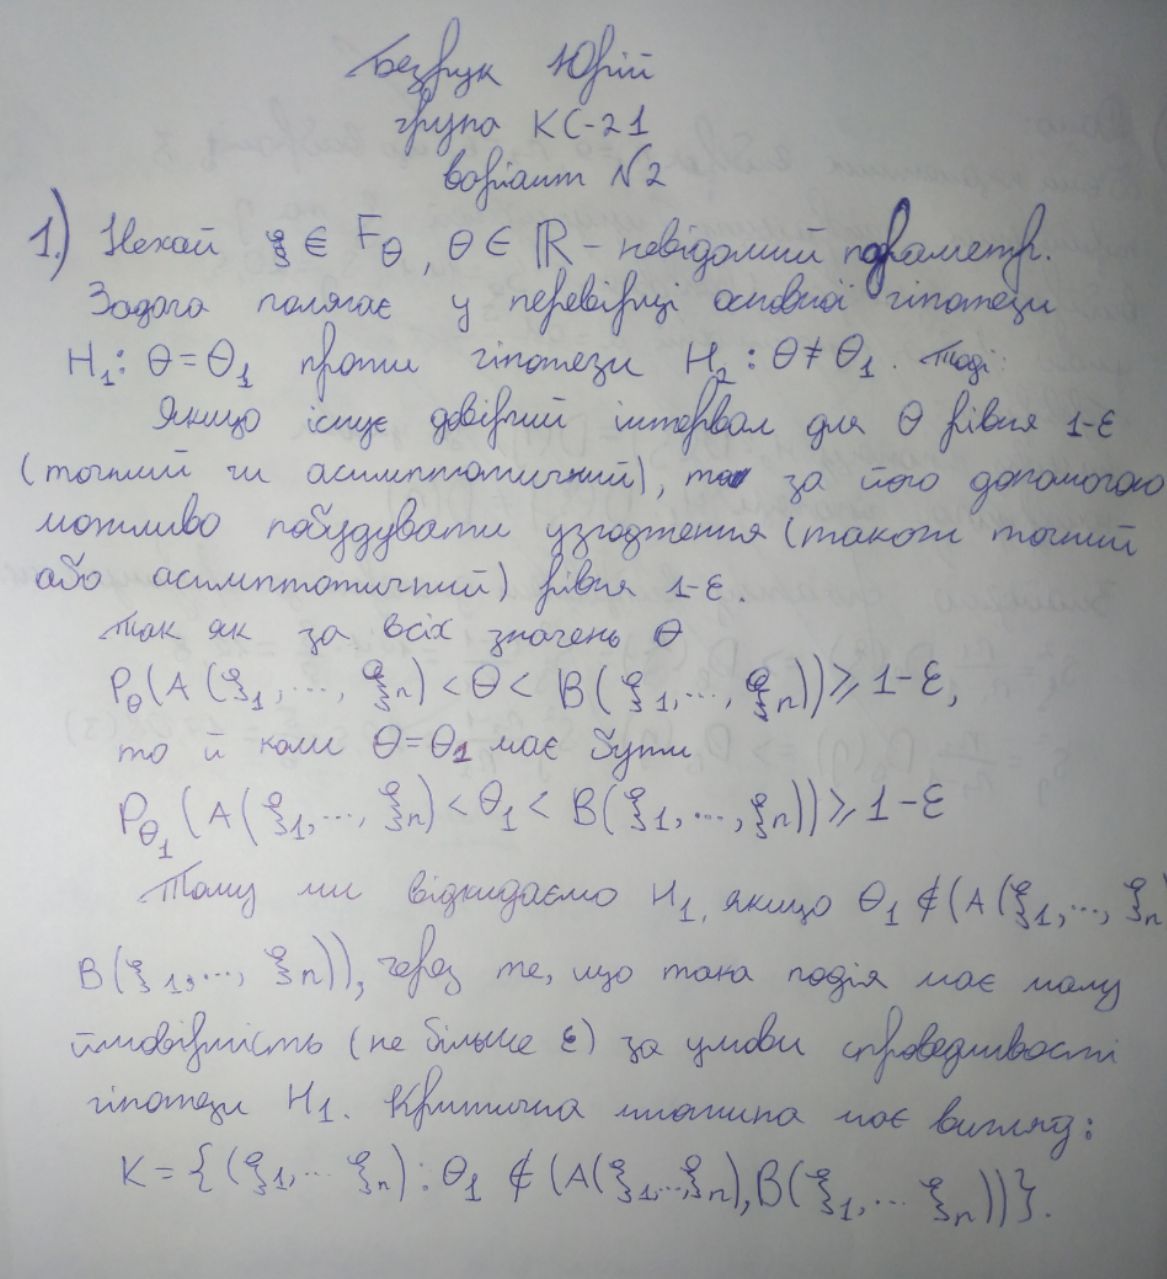 Безрук Юрій
група КС-21
варіант №2
1.) Нехай ξ ∈ F_θ, θ ∈ ℝ – невідомий параметр.
Задача полягає у перевірці основної гіпотези
H₁: θ = θ₁ проти гіпотези H₂: θ ≠ θ₁. Тоді:
Якщо існує довірчий інтервал для θ рівня 1-ε
(точний чи асимптотичний), то за його допомогою
можливо побудувати узгодження (також точний
або асимптотичний) рівня 1-ε.
Так як за всіх значень θ
P_θ(A(ξ₁,...,ξₙ) < θ < B(ξ₁,...,ξₙ)) ⩾ 1-ε,
то й коли θ = θ₁ має бути
P_θ₁(A(ξ₁,...,ξₙ) < θ₁ < B(ξ₁,...,ξₙ)) ⩾ 1-ε
Тому ми відкидаємо H₁, якщо θ₁ ∉ (A(ξ₁,...,ξₙ)
B(ξ₁,...,ξₙ)), через те, що така подія має малу
ймовірність (не більше ε) за умови справедливості
гіпотези H₁. Критична множина має вигляд:
K = {(ξ₁,... ξₙ): θ₁ ∉ (A(ξ₁,...,ξₙ), B(ξ₁,... ξₙ))}.